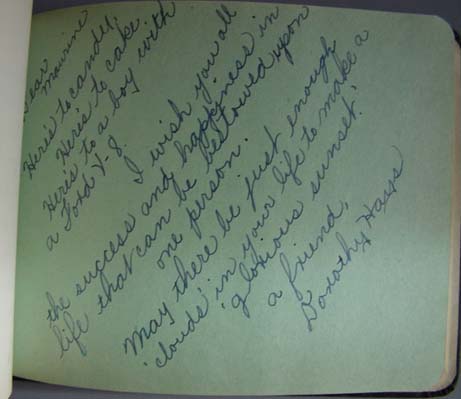 Dear
Maurine
Here's to candy,
Here's to cake
Here's to a boy with
a Ford V-8.
I wish you all
the success and happiness in
life that can be bestowed upon
one person.
May there be just enough
'clouds' in your life to make a
'glorious sunset.'
a friend,
Dorothy Haas